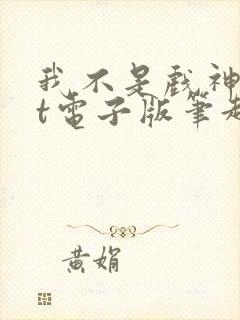 我不是戲神
t電子版筆趣
黃娟